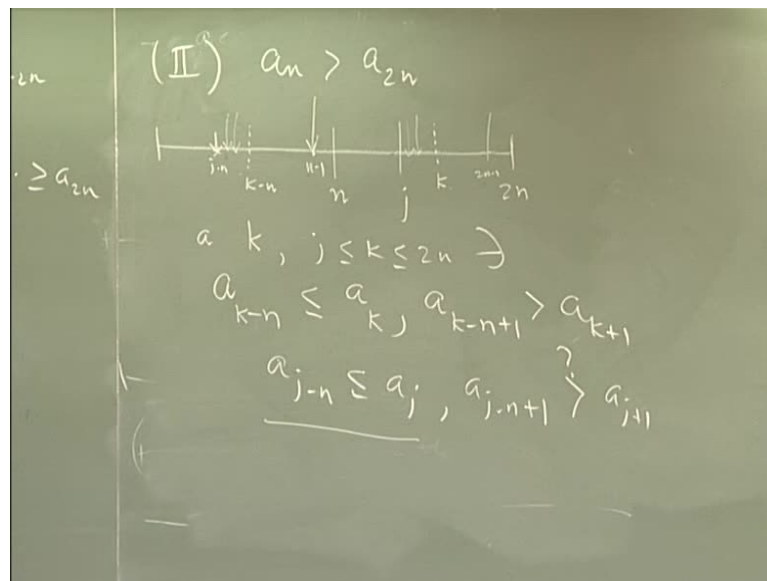 (II) a_n > a_{2n}
-2n
j-n k-n n-1 n j k 2n-1 2n
. ≥ a_{2n}
a k, j ≤ k ≤ 2n ∋
a_{k-n} ≤ a_k, a_{k-n+1} > a_{k+1}
?
a_{j-n} ≤ a_j, a_{j-n+1} > a_{j+1}